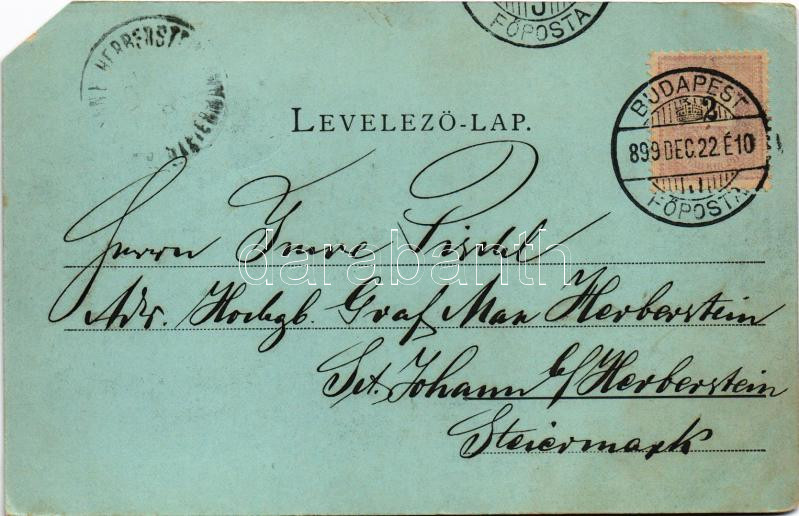 FŐPOSTA
BUDAPEST
2
899 DEC. 22. É 10
FŐPOSTA
LEVELEZŐ-LAP.
Herrn Imre Pischl
Adr. Hochgb. Graf Max Herberstein
Sct. Johann b/Herberstein
Steiermark
darabanth